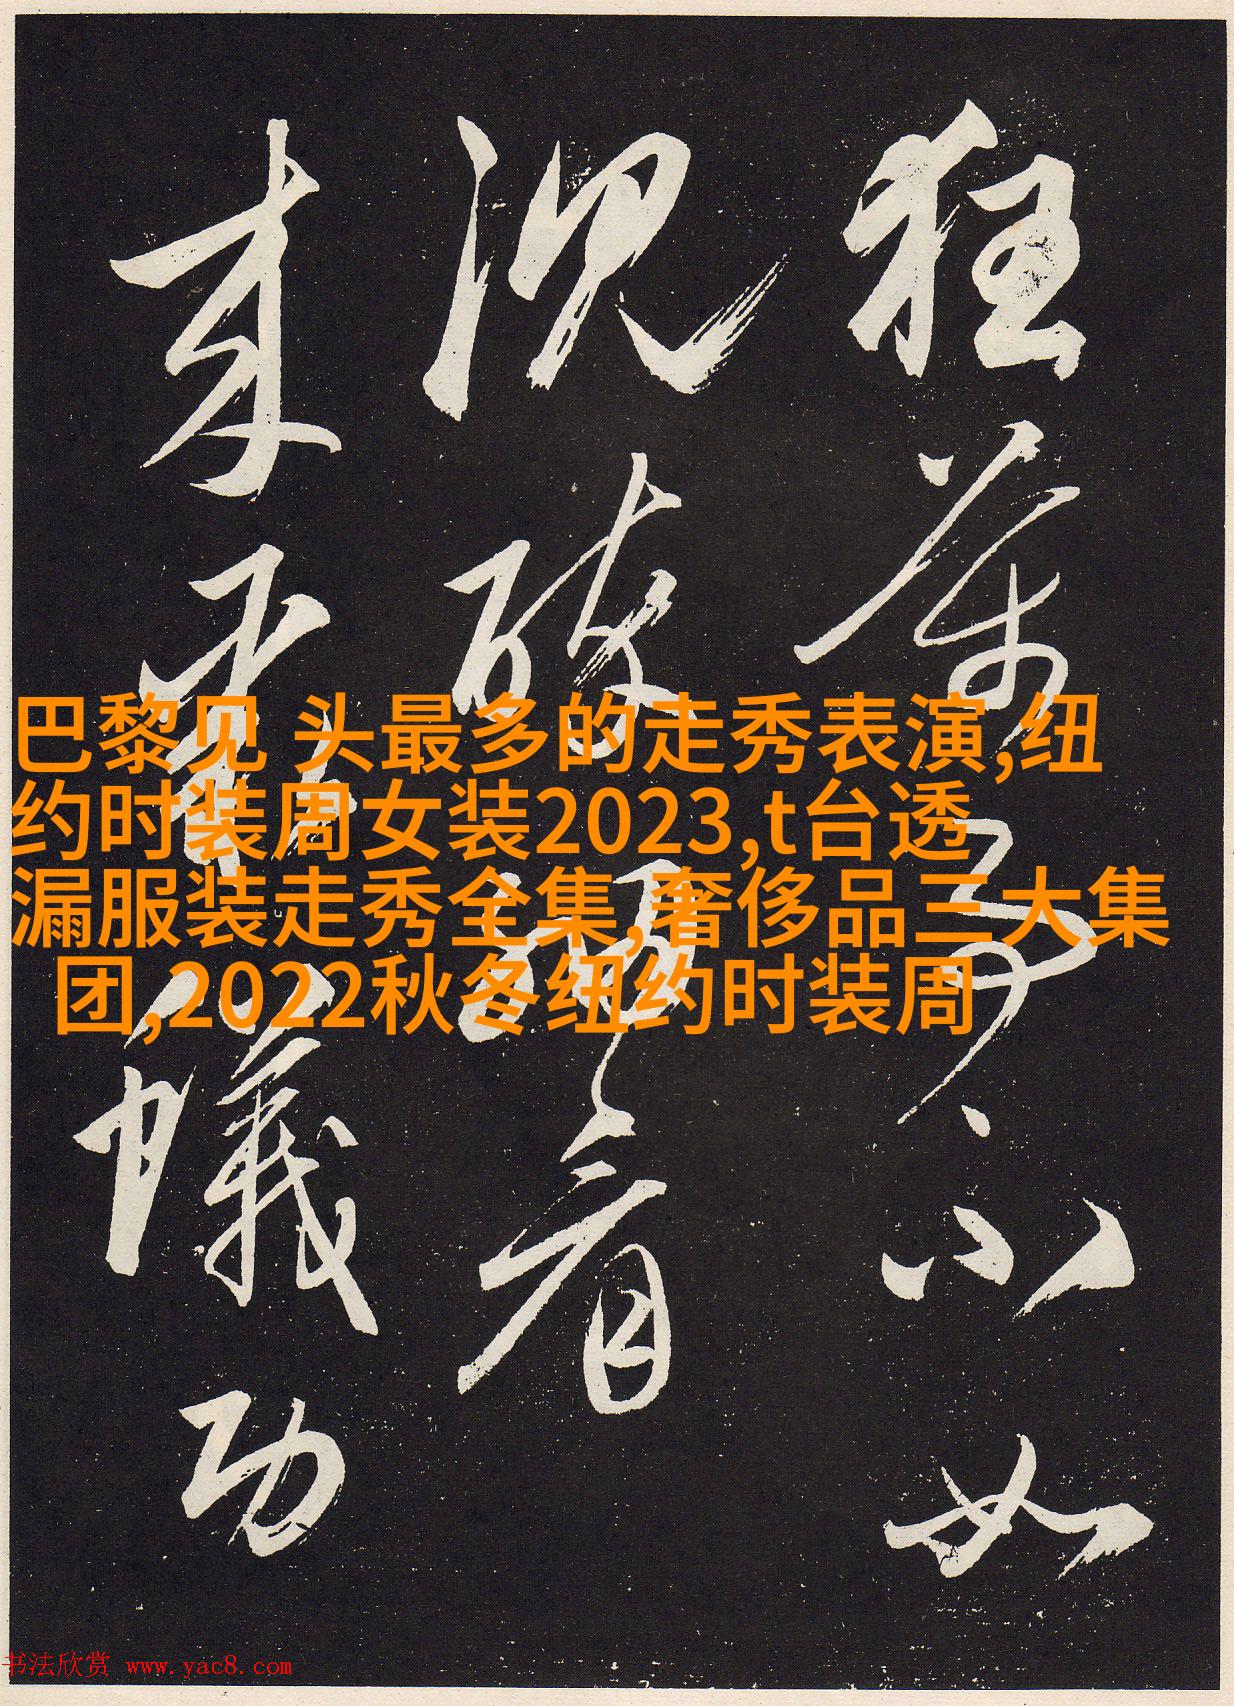 巴黎见 头最多的走秀表演,纽
约时装周女装2023,t台透
漏服装走秀全集,奢侈品三大集
团,2022秋冬纽约时装周
狂 不如
况 看
来 功
书法欣赏 www.yac8.com